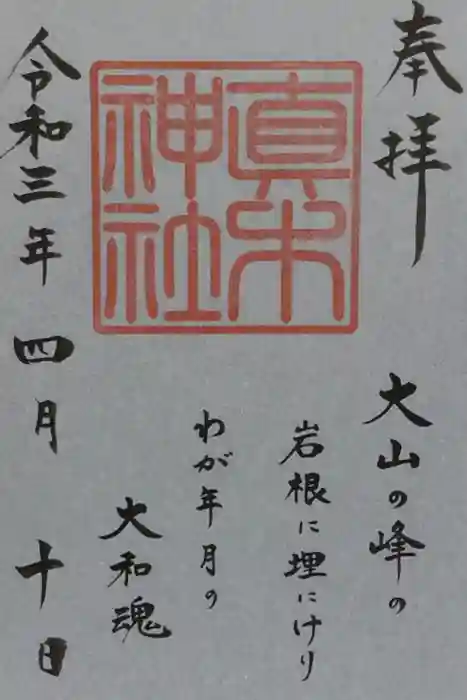 奉拝
真木
神社
大山の峰の
岩根に埋にけり
わが年月の
大和魂
令和三年四月十日